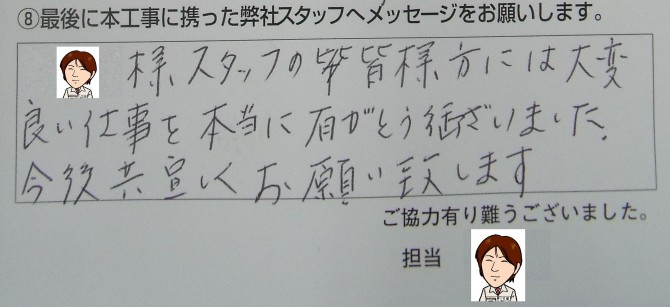 ⑧最後に本工事に携った弊社スタッフへメッセージをお願いします。
様スタッフの皆様方には大変
良い仕事を本当に有がとう御ざいました。
今後共宜しくお願い致します
ご協力有り難うございました。
担当